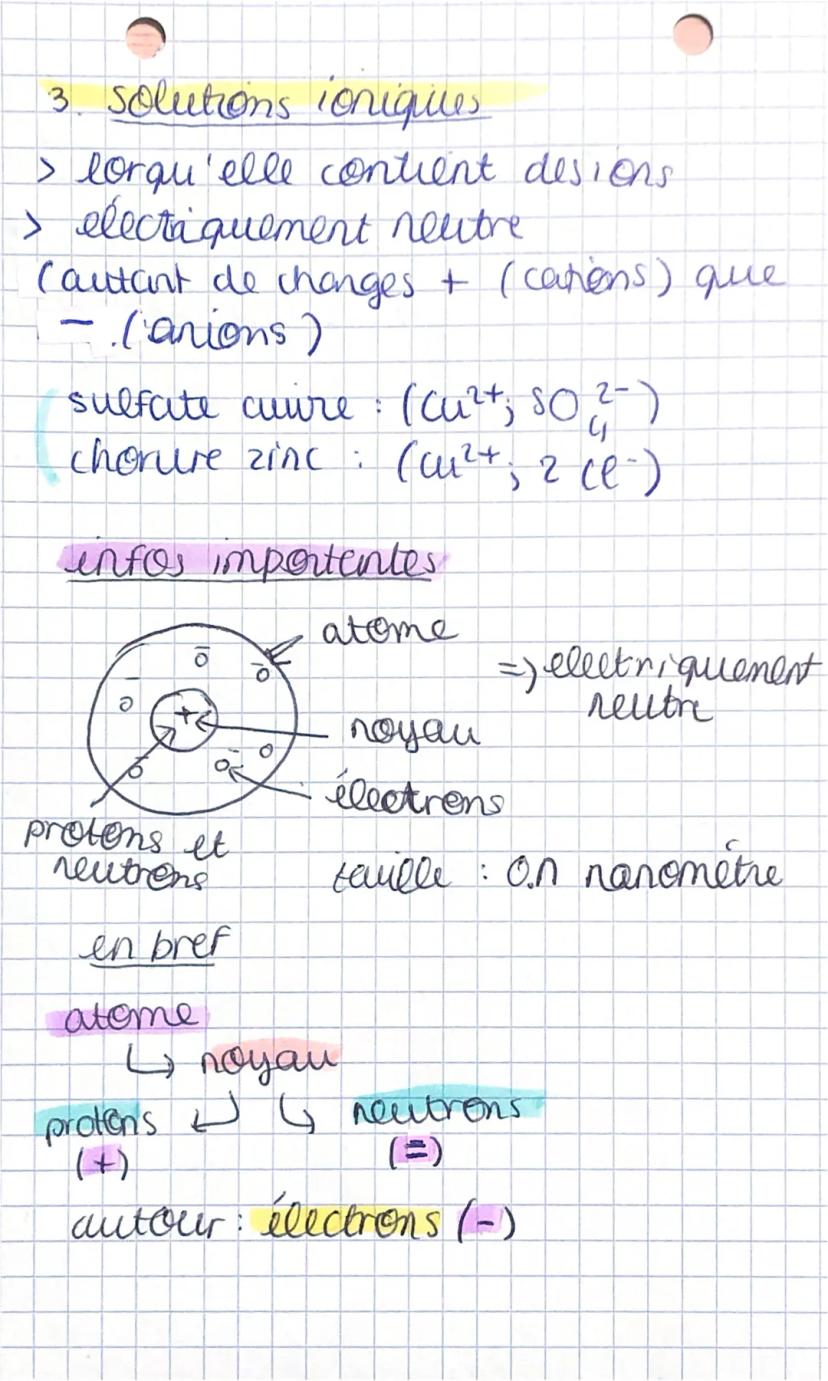 3. solutions ioniques
> lorqu'elle contient des ions
> électriquement neutre
(autant de charges + (cations) que
- (anions)
sulfate cuivre : (Cu²⁺; SO₄²⁻)
chorure zinc : (Cu²⁺; 2 Cl⁻)
infos importentes
atome
=> electriquement
neutre
noyau
électrons
protons et
neutrons
taille : 0.1 nanomètre
en bref
atome
↳ noyau
protons ↲ ↳ neutrons
(+) (=)
autour : électrons (-)